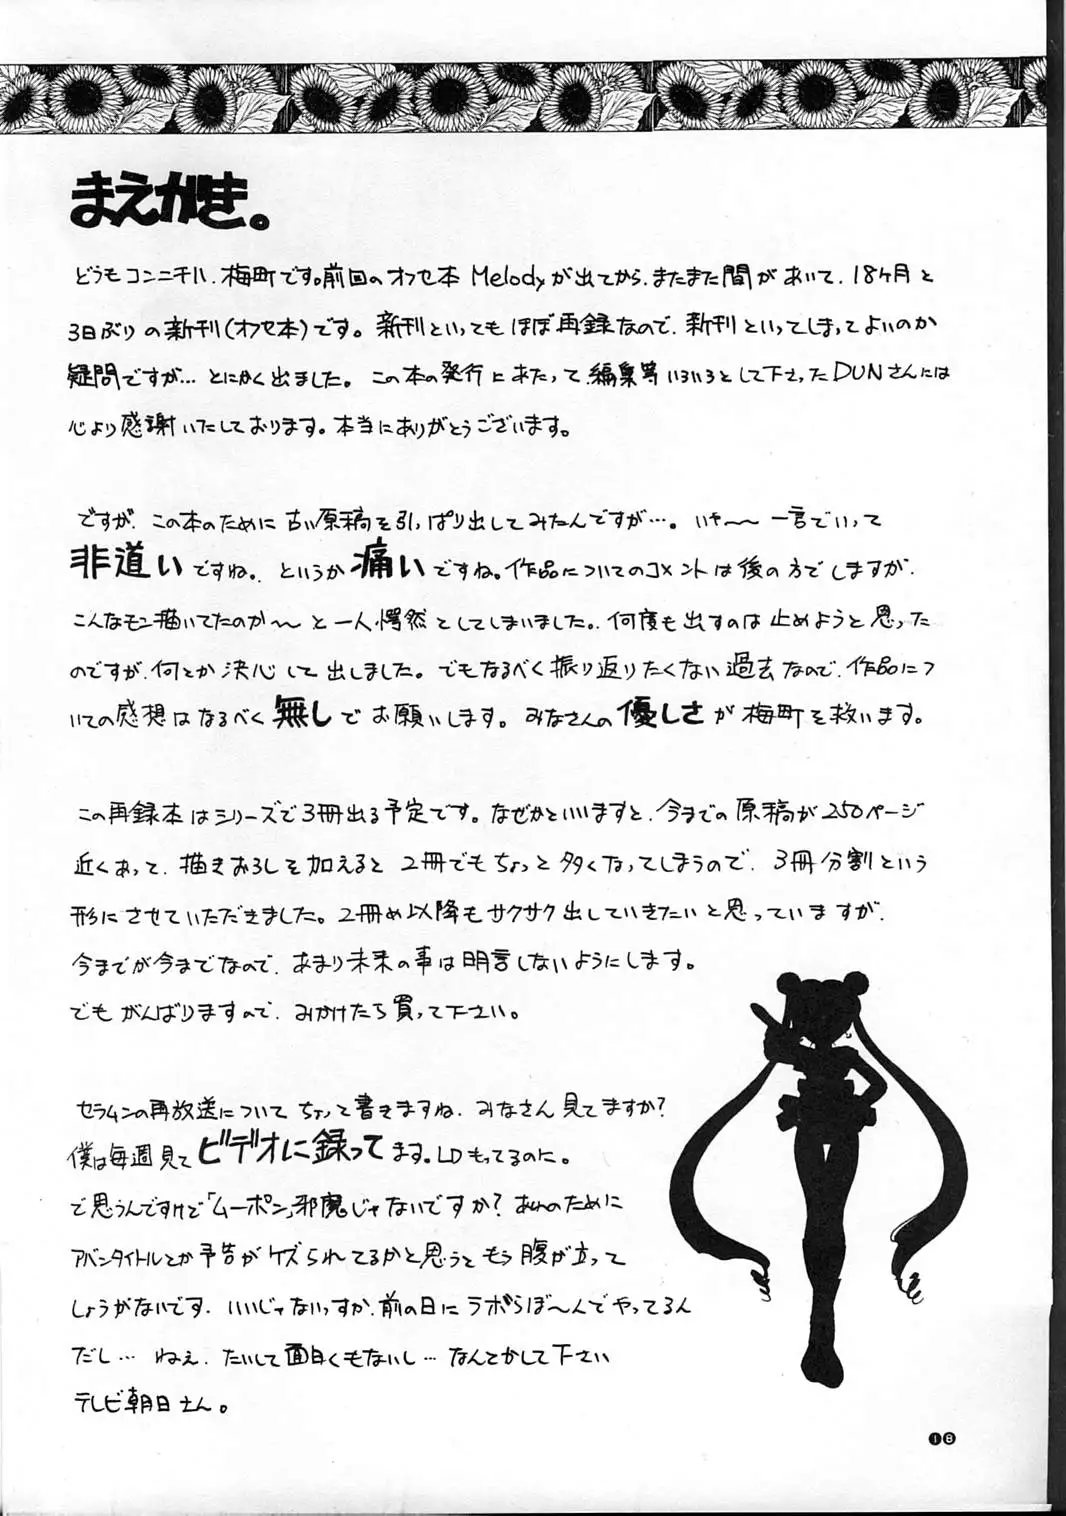 まえがき。
どうもコンニチハ、梅町です。前回のオフセ本 Melodyが出てから、またまた間があいて、18ヶ月と
3日ぶりの新刊(オフセ本)です。新刊といってもほぼ再録なので、新刊といってしまってよいのか
疑問ですが…とにかく出ました。この本の発行にあたって、編集等いろいろとして下さったDUNさんには
心より感謝いたしております。本当にありがとうございます。
ですが、この本のために古い原稿を引っぱり出してみたんですが…。いや〜〜一言でいって
非道いですね。というか痛いですね。作品についてのコメントは後の方でしますが、
こんなモン描いてたのか〜〜と一人愕然としてしまいました。何度も出すのは止めようと思った
のですが、何とか決心して出しました。でもなるべく振り返りたくない過去なので、作品につ
いての感想はなるべく無しでお願いします。みなさんの優しさが梅町を救います。
この再録本はシリーズで3冊出る予定です。なぜかといいますと、今までの原稿が250ページ
近くあって、描きおろしを加えると2冊でもちょっと多くなってしまうので、3冊分割という
形にさせていただきました。2冊め以降もサクサク出していきたいと思っていますが、
今までが今までなので、あまり未来の事は明言しないようにします。
でもがんばりますので、みかけたら買って下さい。
セラムンの再放送についてちょって書きますね、みなさん見てますか?
僕は毎週見てビデオに録ってます。LDもってるのに。
で思うんですけど「ムーポン」邪魔じゃないですか?あれのために
アバンタイトルとか予告がケズられてるかと思うともう腹が立って
しょうがないです、いいじゃないっすか、前の日にラボらぼ〜んでやってるん
だし…ねぇ、たいして面白くもないし…なんとかして下さい
テレビ朝日さん。
18